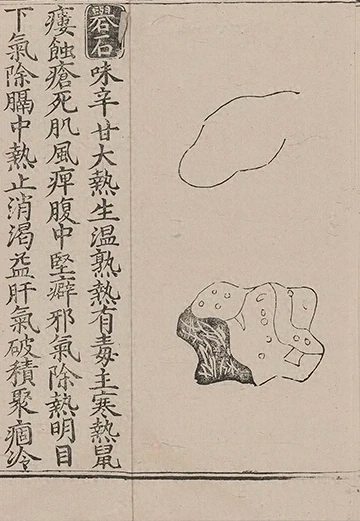 礜石味辛甘大熱生温熟熱有毒主寒熱鼠
瘻蝕瘡死肌風痺腹中堅癖邪氣除熱明目
下氣除膈中熱止消渴益肝氣破積聚痼冷